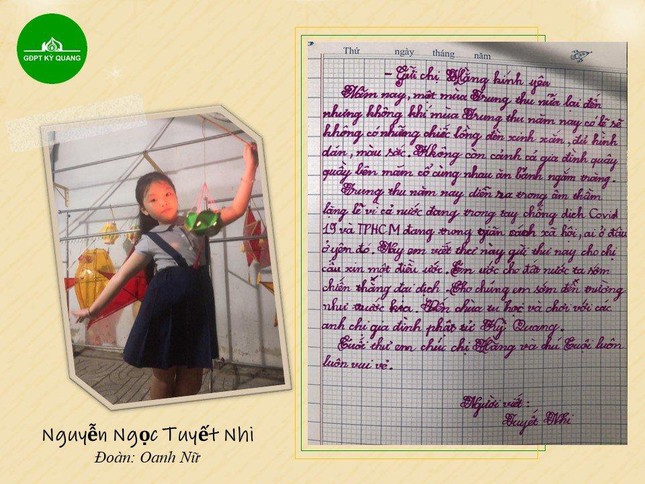 GĐPT KỲ QUANG
Thứ ngày tháng năm
- Gửi chị Hằng kính yêu
Năm nay, một mùa Trung thu nữa lại đến
nhưng không khí mùa Trung thu năm nay có lẽ sẽ
không có những chiếc lồng đèn xinh xắn, đủ hình
dán, màu sắc. Không còn cảnh cả gia đình quây
quầy bên mâm cỗ cùng nhau ăn bánh ngắm trăng.
Trung thu năm nay diễn ra trong âm thầm
lặng lẽ vì cả nước đang trong tay chống dịch Covid
19 và TPHCM đang trong giãn cách xã hội, ai ở đâu
ở yên đó. Nay em viết thư này gửi thư này cho chị
cầu xin một điều ước. Em ước cho đất nước ta sớm
chiến thắng đại dịch. Cho chúng em sớm đến trường
như trước kia. Đến chùa tu học và chơi với các
anh chị gia đình phật tử Kỳ Quang.
Cuối thư em chúc chị Hằng và chú Cuội luôn
luôn vui vẻ.
Người viết:
Tuyết Nhi
Nguyễn Ngọc Tuyết Nhi
Đoàn: Oanh Nữ